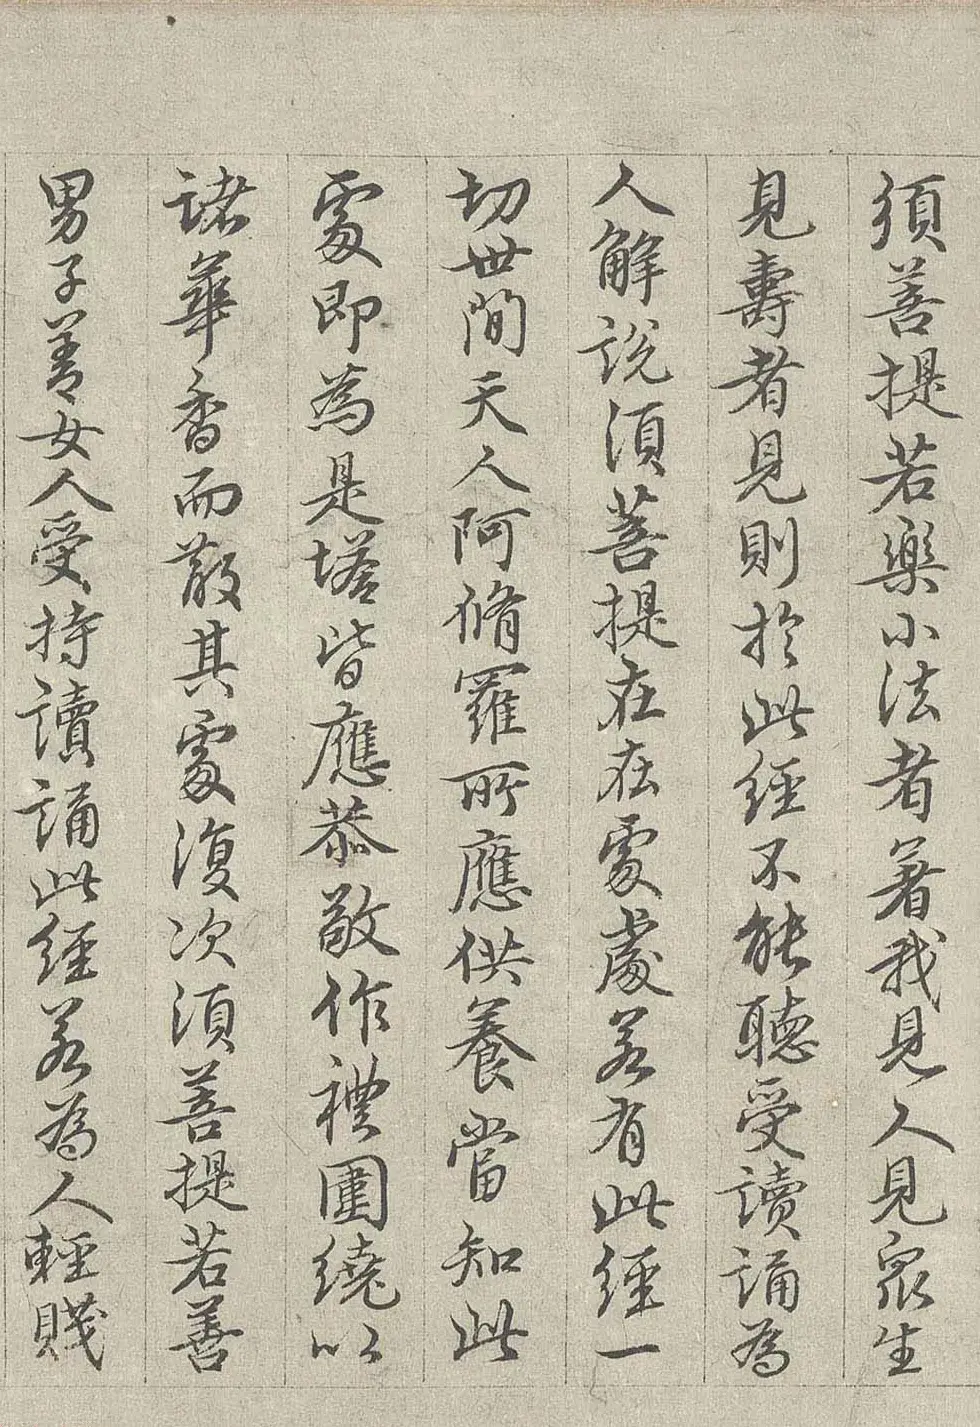 須菩提若樂小法者著我見人見眾生
見壽者見則於此經不能聽受讀誦為
人解說須菩提在在處處若有此經一
切世間天人阿脩羅所應供養當知此
處即為是塔皆應恭敬作禮圍繞以
諸華香而散其處復次須菩提若善
男子善女人受持讀誦此經若為人輕賤